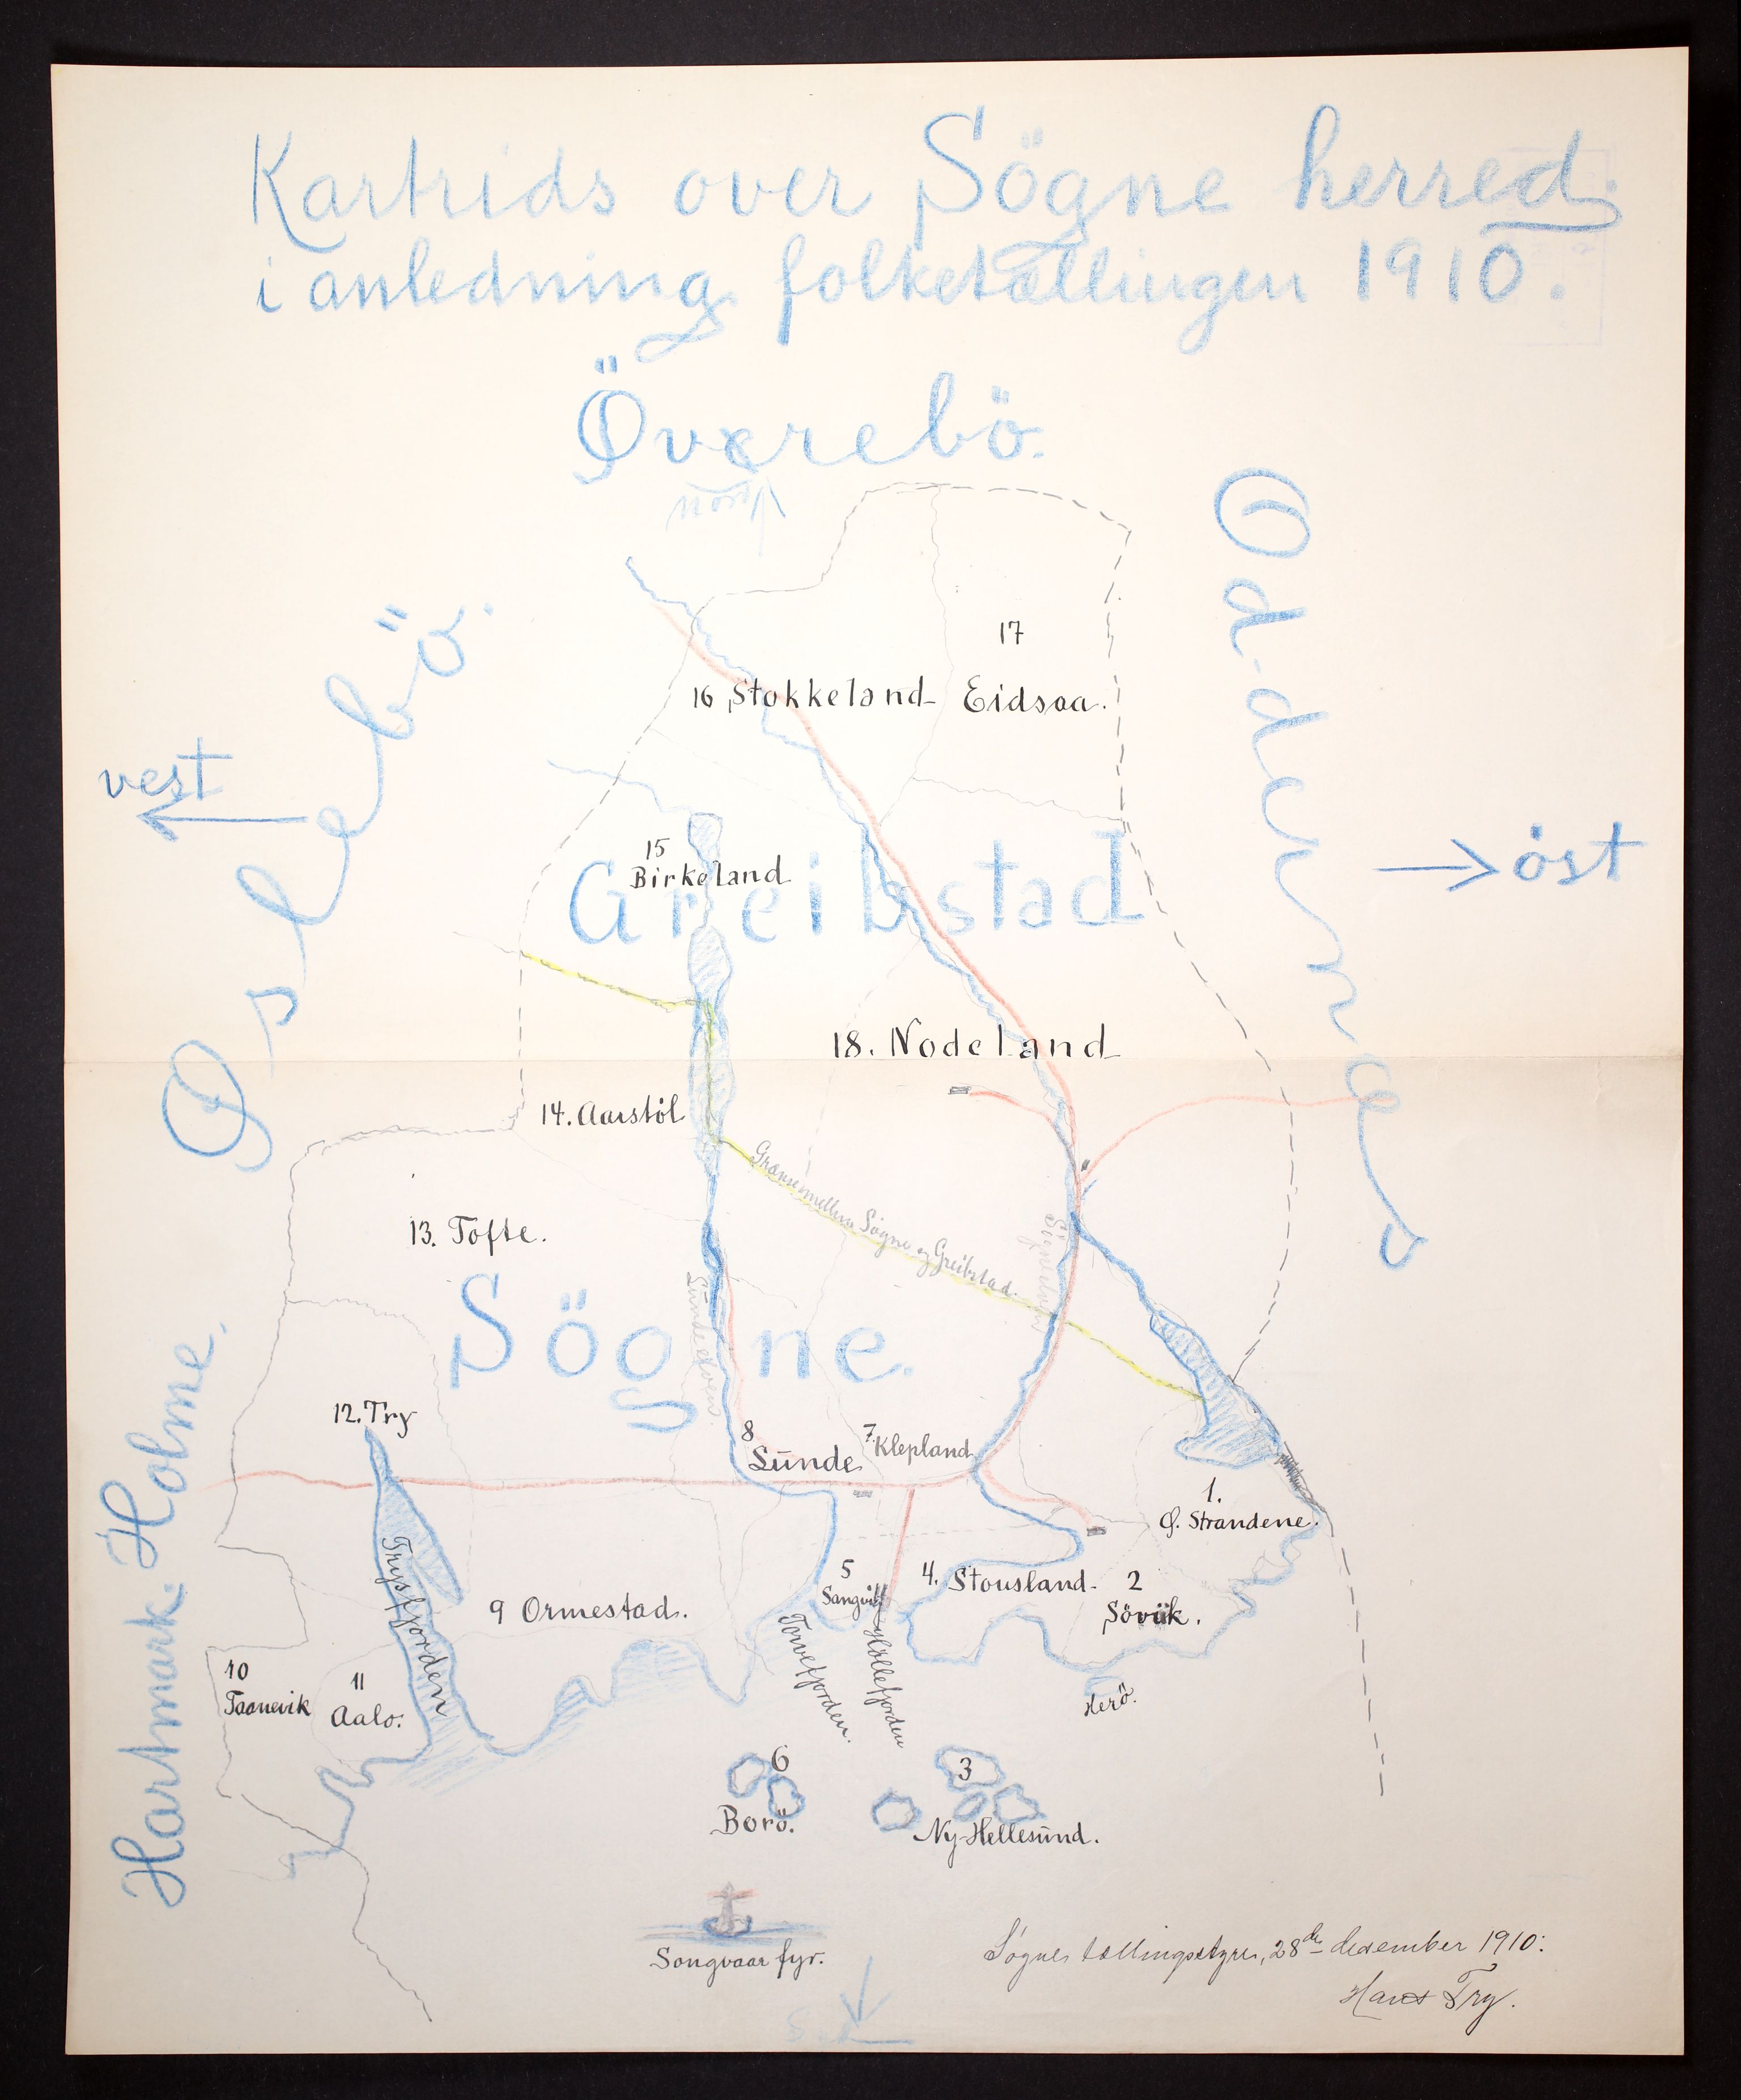 Kartrids over Sögne herred
i anledning folketællingen 1910.
Øverebö.
nord
Oddernes
Øslebö.
vest
öst
17
16 Stokkeland
Eidsaa.
15
Birkeland
Greibstad
18. Nodeland
14. Aarstöl
Grænse mellem Sögne og Greibstad.
13. Tofte.
Sögne.
Sundeelven.
Sögneelven
12. Try
8
Sūnde
7.
Klepland
1.
Ø. Strandene.
Trysfjorden
9 Ormestad.
5
Sangvik
4. Stousland
2
Sövik.
Torvefjorden.
Höllefjorden
Herö.
10
Taanevik
11
Aalo.
Hartmark.
Holme.
6
Borö.
3
Ny-Hellesūnd.
Songvaar fyr.
Søgnes tællingsstyre, 28de desember 1910:
Hans Try.